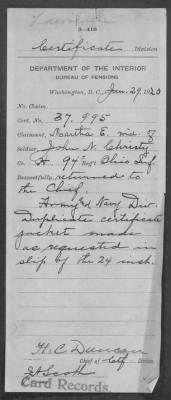 3-416
Certificate Division
DEPARTMENT OF THE INTERIOR
BUREAU OF PENSIONS
Washington, D. C., Jan. 29, 1920
No. Claim,
Cert. No. 37,995
Claimant, Martha E. wid. of
Soldier, John N. Christy
Co. H. 97" Reg't Ohio Inf
Respectfully returned to
the Chief,
Army & Navy Div.
Duplicate certificate
jacket made
as requested in
slip of the 24 inst.
H. C. Duncan
Chief of Ctf. Division
Scott
Card Records.